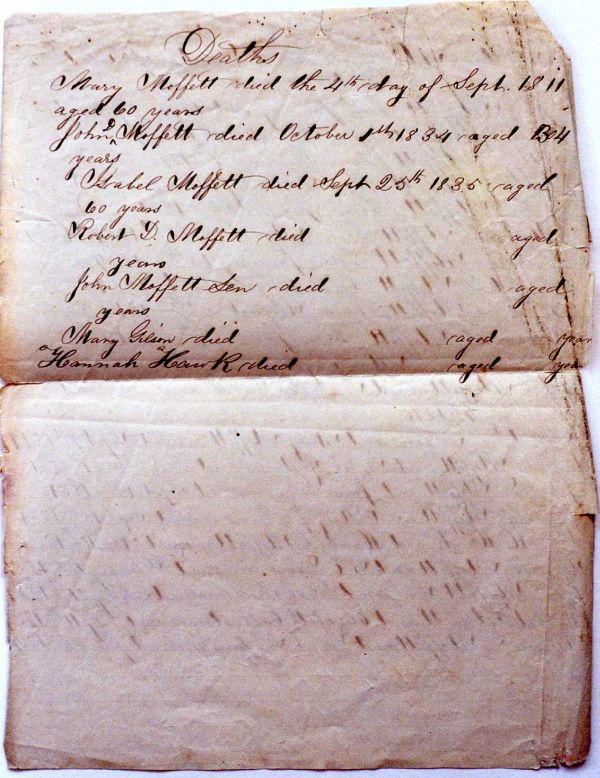 Deaths
Mary Moffett died the 4th day of Sept. 1811
aged 60 years
John D Moffett died October 1th 1834 aged 34
years
Isabel Moffett died Sept 25th 1835 aged
60 years
Robert D. Moffett died aged
years
John Moffett Sen died aged
years
Mary Gilson died aged year
Hannah Hawk died aged year